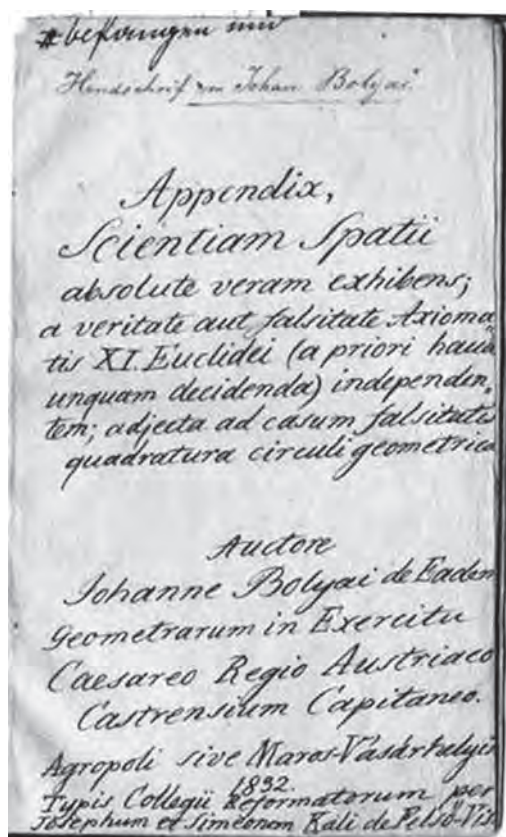 Handschrift von Johan Bolyai
Appendix,
Scientiam Spatii
absolute veram exhibens;
a veritate aut falsitate Axioma
tis XI. Euclidei (a priori haud
unquam decidenda) independen„
tem; adjecta ad casum falsitatis
quadratura circuli geometrica
Auctore
Johanne Bolyai de Eadem
Geometrarum in Exercitu
Caesareo Regio Austriaco
Castrensium Capitaneo.
Agropoli sive Maros-Vásárhelyii
1832.
Typis Collegii Reformatorum per
Josephum et Simeonem Kali de Felsö-Vist